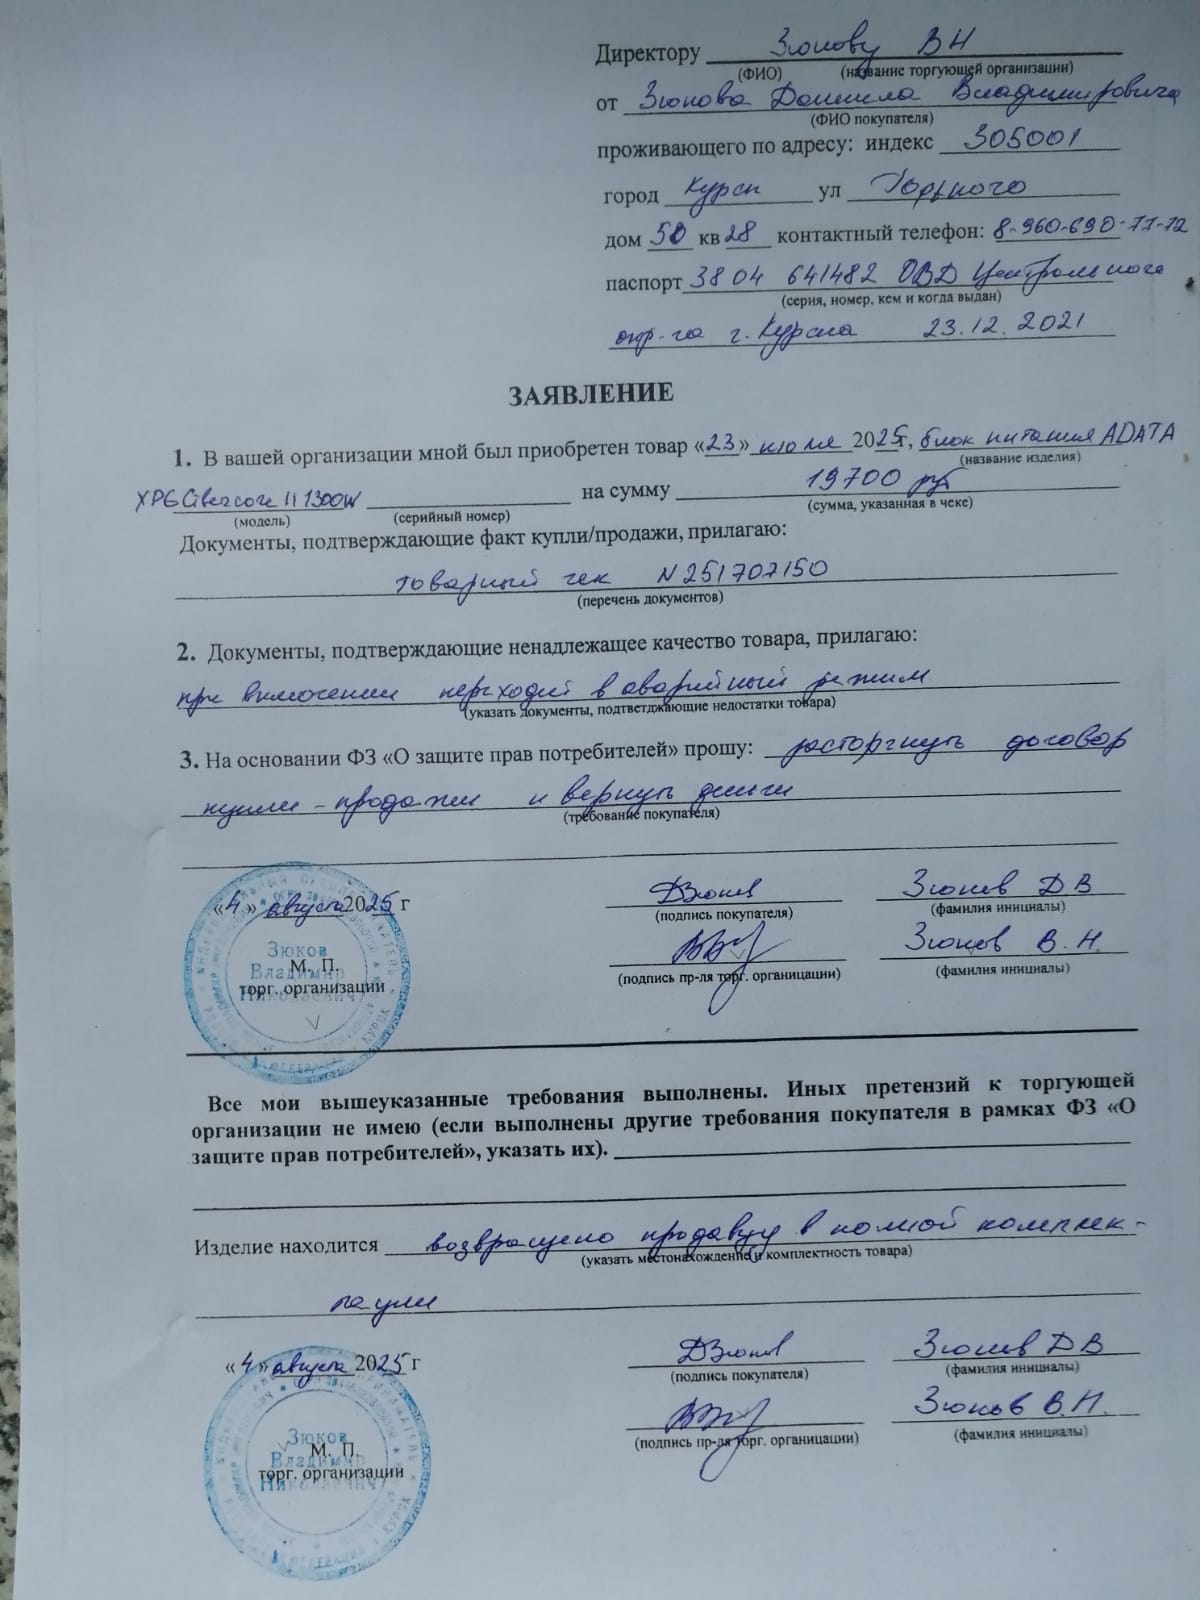 Директору Зюкову ВН
(ФИО) (название торгующей организации)
от Зюкова Даниила Владимировича
(ФИО покупателя)
проживающего по адресу: индекс 305001
город Курск ул Горького
дом 50 кв 28 контактный телефон: 8-960-690-11-12
паспорт 38 04 641482 ОВД Центрального
(серия, номер, кем и когда выдан)
окр-га г. Курска 23.12.2021
ЗАЯВЛЕНИЕ
1. В вашей организации мной был приобретен товар «23» июля 2025г, блок питания ADATA
(название изделия)
XPG Cibercore II 1300W на сумму 19700 руб
(модель) (серийный номер) (сумма, указанная в чеке)
Документы, подтверждающие факт купли/продажи, прилагаю:
товарный чек N 251707150
(перечень документов)
2. Документы, подтверждающие ненадлежащее качество товара, прилагаю:
при включении переходит в аварийный режим
(указать документы, подтветджающие недостатки товара)
3. На основании ФЗ «О защите прав потребителей» прошу: расторгнуть договор
купли-продажи и вернуть деньги
(требование покупателя)
«4» августа 2025 г ДЗюков Зюков ДВ
(подпись покупателя) (фамилия инициалы)
Зюков В.Н.
(подпись пр-ля торг. органицации) (фамилия инициалы)
Зюков
Владимир
Николаевич
М. П.
торг. организации
Все мои вышеуказанные требования выполнены. Иных претензий к торгующей
организации не имею (если выполнены другие требования покупателя в рамках ФЗ «О
защите прав потребителей», указать их).
Изделие находится возвращено продавцу в полной комплек-
(указать местонахождение и комплектность товара)
тации
«4» августа 2025 г ДЗюков Зюков ДВ
(подпись покупателя) (фамилия инициалы)
Зюков В.Н.
(подпись пр-ля торг. органицации) (фамилия инициалы)
Зюков
Владимир
Николаевич
М. П.
торг. организации